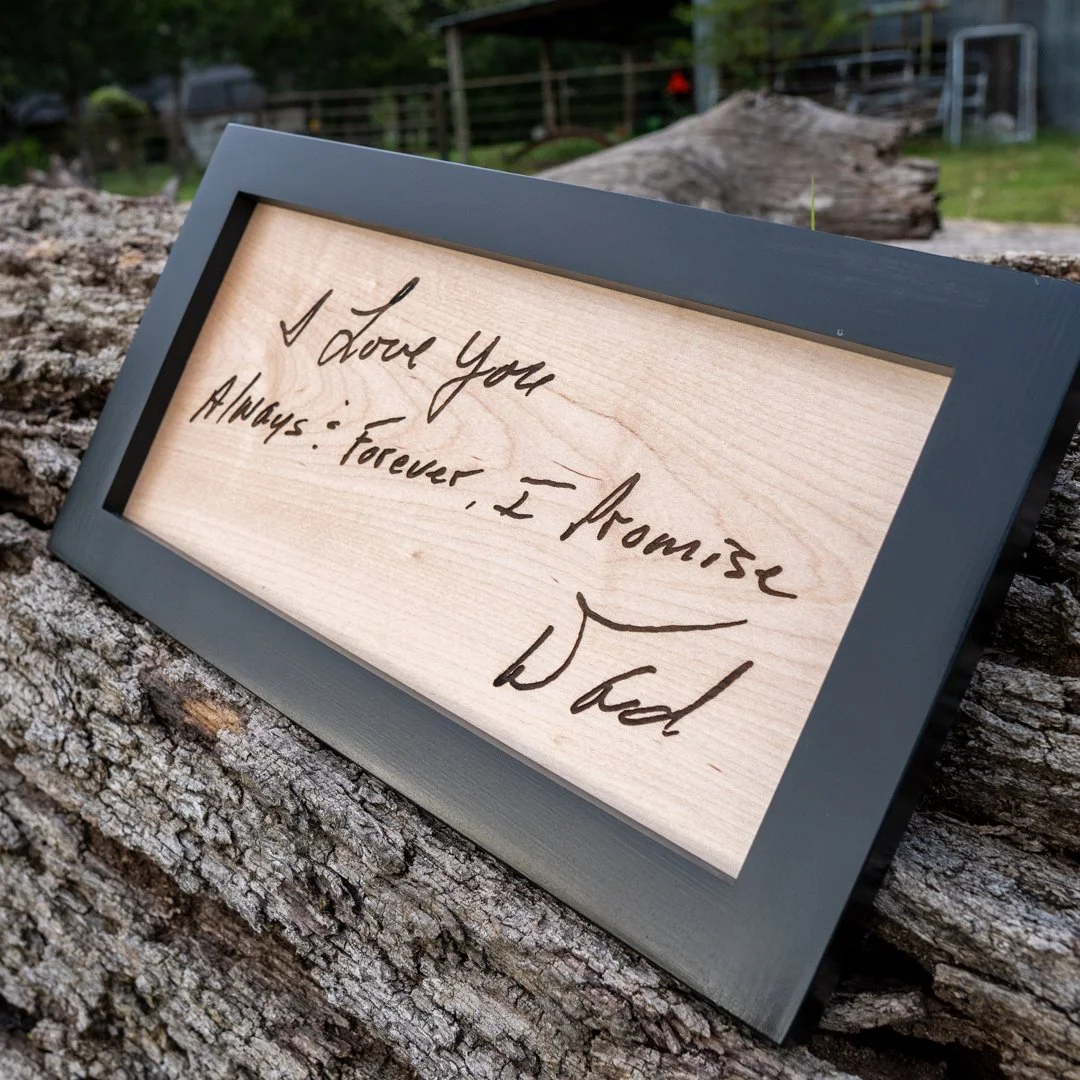 I Love You
Always : Forever, I Promise
Dad